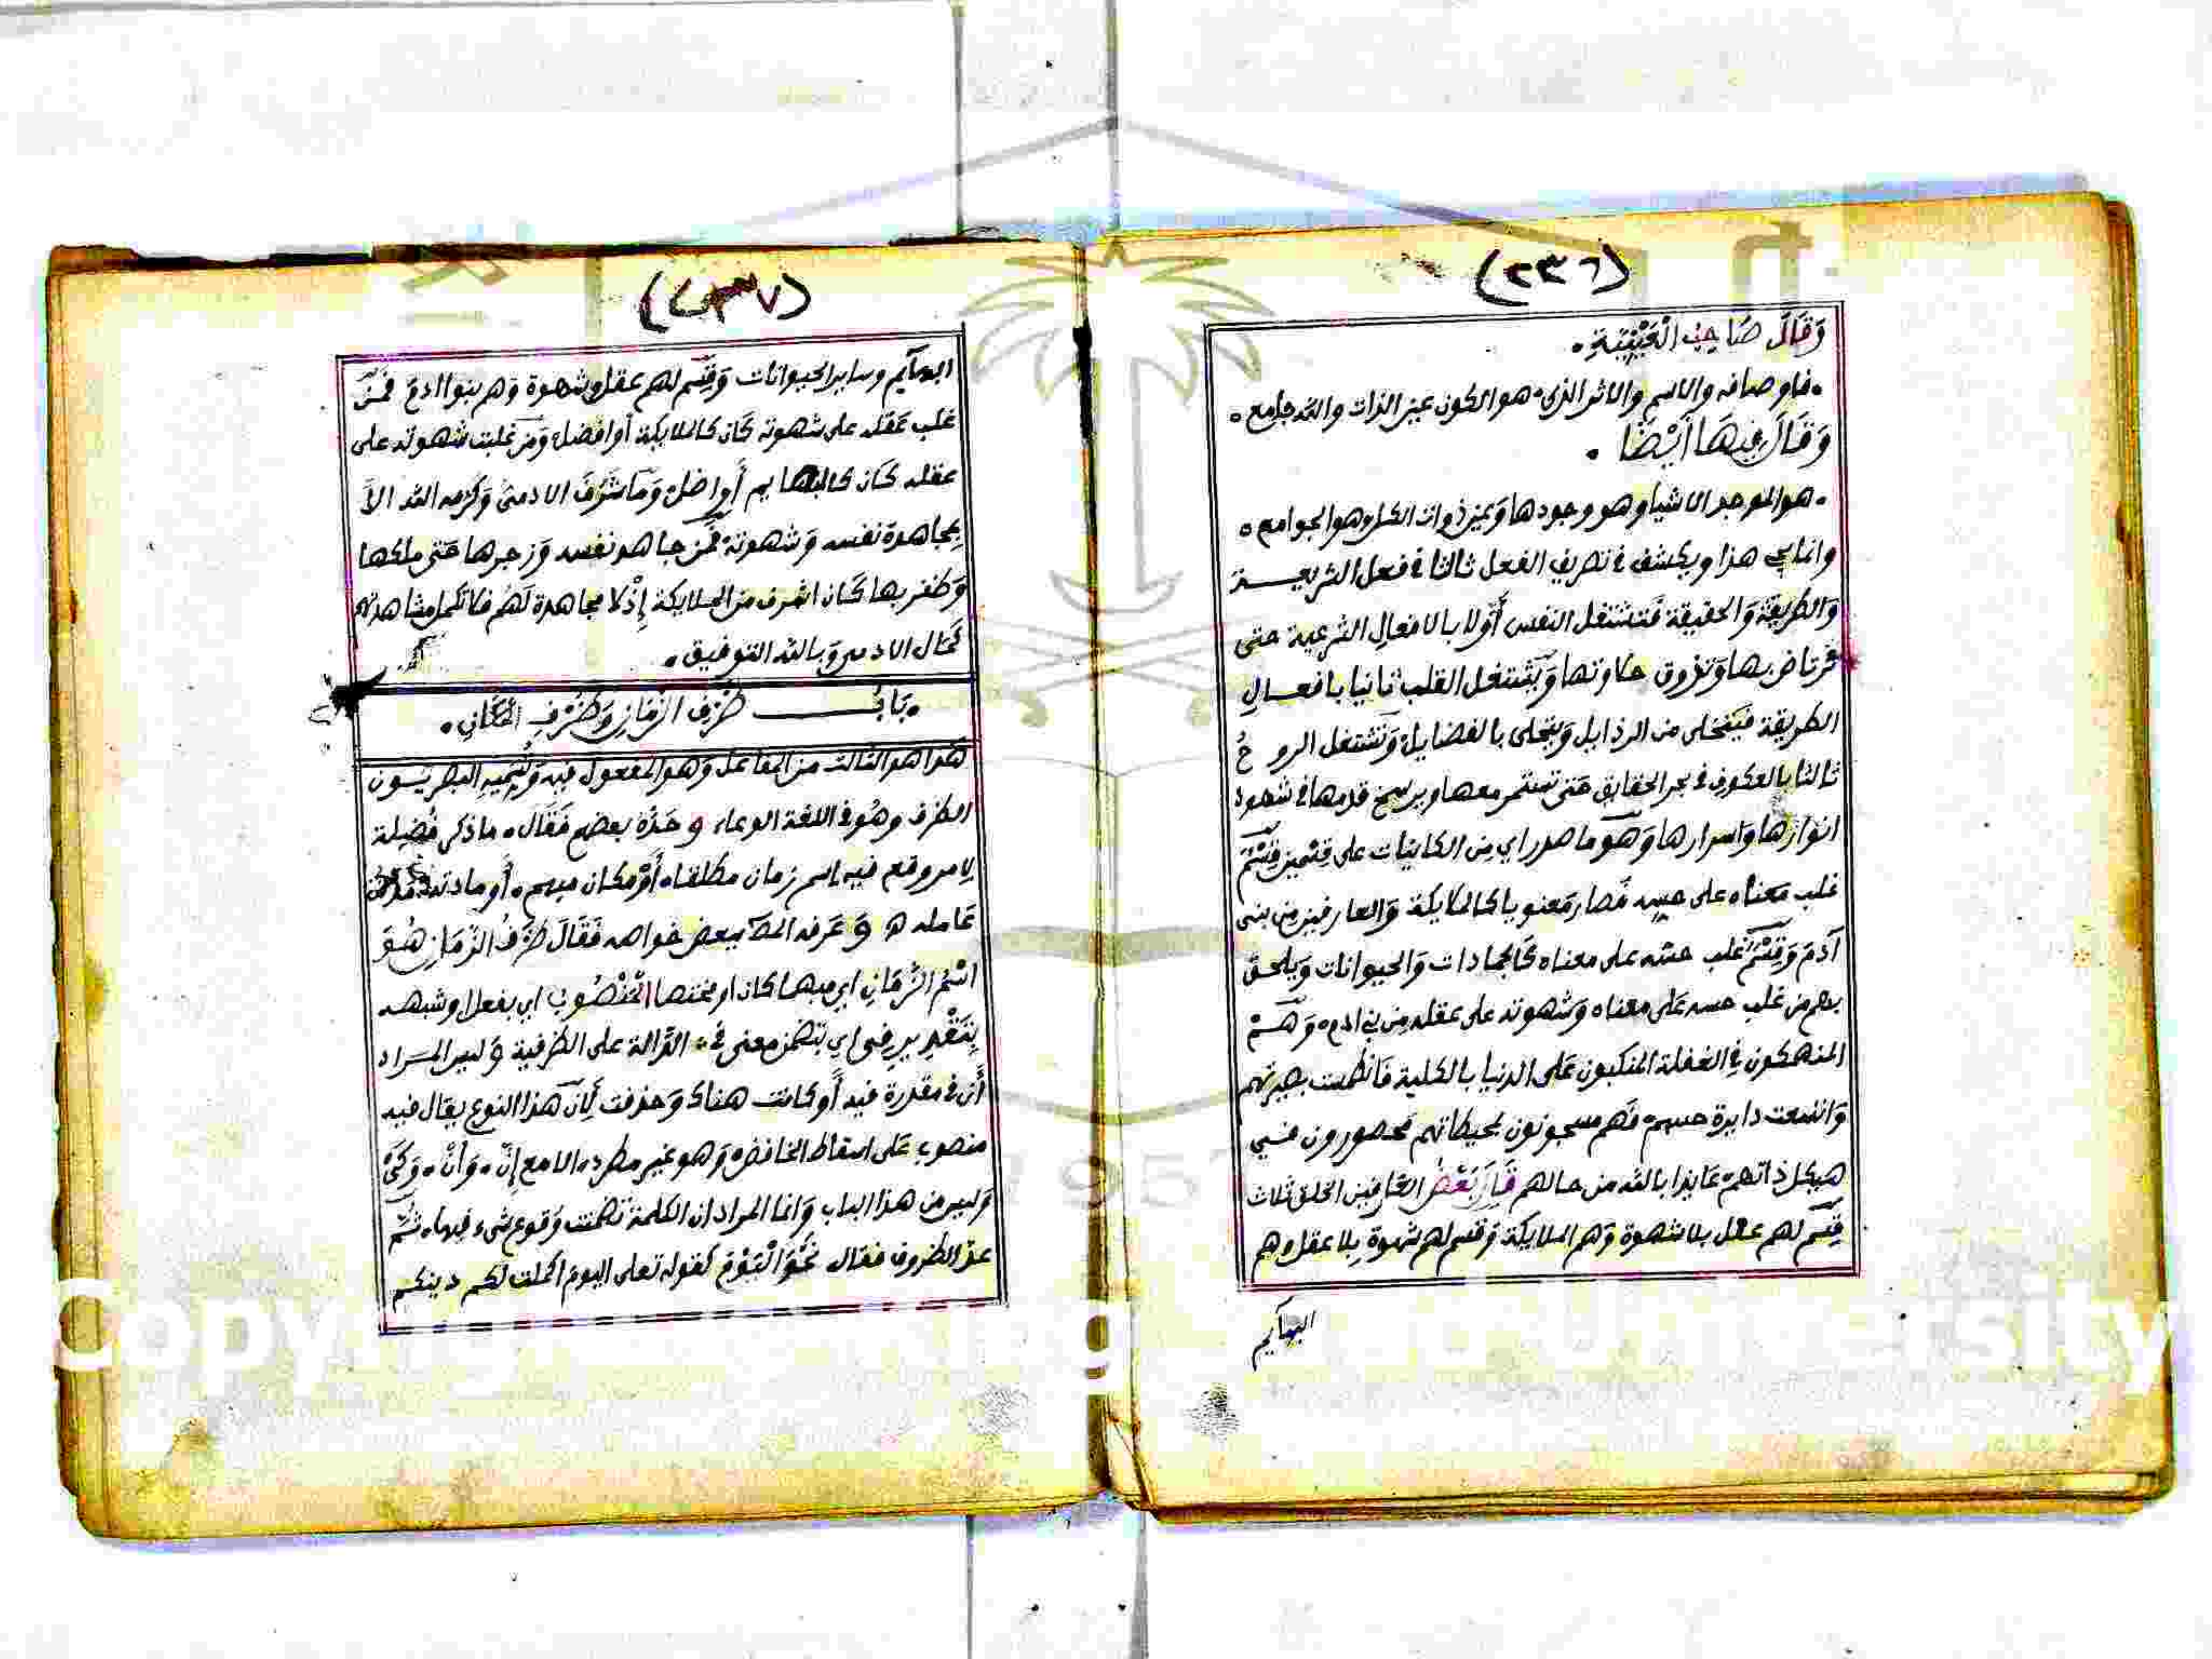 (٢٣٦)
وَقَالَ صَاحِبُ الْعَيْنِيَّةِ.
.فاوصافه والاسم والاثر الذي. هو الكون عين الذات والله جامع.
وَقَالَ فِيهَا أَيْضًا.
.هو الموجد الاشيا وهو وجودها وَعين ذوات الكل وهو الجوامع.
وانما يجي هذا ويكشف في تصريف الفعل ثالثا في فعل الشريعة
وَالطريقة وَالحقيقة فتشتغل النفس أولا بالافعال الشرعية حتى
ترتاض بها وَتذوق حلاوتها وَيَشتغل القلب ثانيا بافعالِ
الطريقة فيَتخلى من الرذايل وَيتحلى بالفضايل وَتشتغل الروحُ
ثالثا بالعكوف في بحر الحقايق حَتى تستمر معها ويرسخ قدمها في شهود
انوارها وَاسرارها وَهوَ ما صدر اي مِن الكاينات على قِسْمين قِسْم
غلب مَعناه على حسه فَصار مَعنويا كالملايكة وَالعارفين من بني
آدَمَ وَقِسْمٌ غلب حسّه على معناه كالجمادات وَالحيوانات وَيلحق
بهم من غلب حسه عَلى معناه وَشهوته على عقله مِن بني ادم. وَهم
المنهمكون في الغفلة المنكبون عَلى الدنيا بالكلية فَانطمست بصيرتهم
وَاتسعت دايرة حسهم. فَهم مسجونون بمحيطاتهم محصورون في
هيكل ذاتهم. عَايذا بالله من حالهم قَالَ بَعْضُ العَارفين الخلق ثلاث
قِسم لهم عقل بلا شهوة وَهم الملايكة وَقسم لهم شهوة بِلا عقل وهم
البهآيم
(٢٣٧)
البهآيم وساير الحيوانات وَقِسم لهم عقل وشهوة وَهم بنوا ادمَ فمَن
غلب عَقله على شهوته كَان كالملايكة أو افضل. وَمن غلبت شهوته على
عقله كَان كالبهايم أَو اضل. وَمَا شَرُفَ الادمى وَكرمه الله الاَّ
بِمجاهدة نفسه وَشهوته. فَمن جاهد نفسه وَزجرها حَتى ملكها
وَظفر بها كَان اشرف من الملايكة إِذْ لا مجاهدة لَهُم فلا تكمل مشاهدتهم
كَمال الادمي وَبالله التوفيق.
.بَابُ ظَرْفِ الزَّمَانِ وَظَرْفِ الْمَكَانِ.
هَذا هو الثالث من المفاعيل وَهو المفعول فيه وَيُسَمِّيهِ البصريُّون
الظرف وهُو في اللغة الوعاء وَحَدَّهُ بعضهم فَقَالَ. ما ذكر فَضيلة
لامر وقع فيه. اسم زمان مطلقا. أَوْ مكان مبهم. أَو مادته
عَامله ه وَعَرفه المص ببعض خواصه فَقَالَ ظَرْفُ الزَّمَانِ هُوَ
اسْمُ الزَّمَانِ اي مبهما كان او مختصا الْمَنْصُوبُ اي بفعل او شبهه
بِتَقْدِيرِ فِى اي يتضمن معنى في الدَّالة على الظرفية وَليس المراد
أَن في مقدرة فيه أَو كانت هناك وَحذفت لِأَنَّ هَذا النوع يقال فيه
منصوب عَلى اسقاط الخافض. وَهو غير مطرد. الا مع إِنّ. وَأَنْ. وَكَيْ
وَليس من هذا الباب وَانما المراد ان الكلمة تضمنت وَقوع شيء فيها. ثم
عدّ الظروف فقال نَحْوُ الْيَوْمَ كقوله تعلى اليوم اكملت لكم دينكم